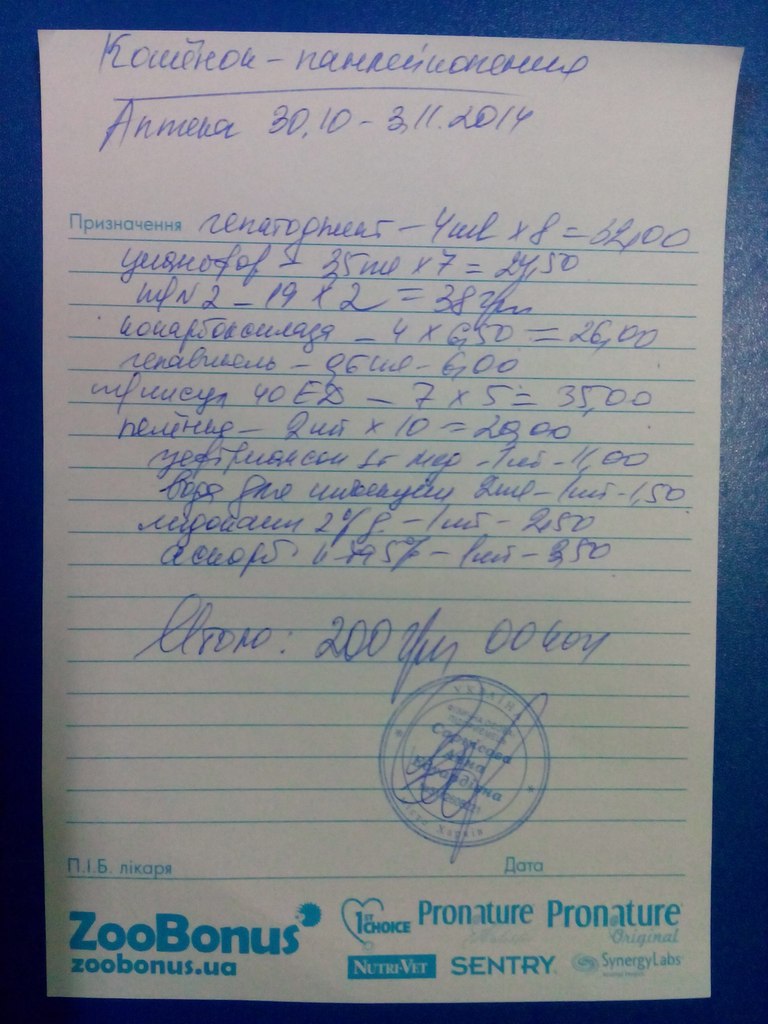 Котёнок - панлейкопения
Аптека 30.10 - 3.11.2014
Призначення гепатоджект - 4мл х 8 = 32,00
35мл х 7 = 24,50
№2 - 19 х 2 = 38 грн
кокарбоксилаза - 4 х 6,50 = 26,00
- 6,00
40 ЕД - 7 х 5 = 35,00
пелёнка - 2шт х 10 = 20,00
цефтриаксон - 1шт - 11,00
вода для инъекций 2мл - 1шт - 1,50
лидокаин 2% - 1шт - 2,50
аскорб к-та 5% - 1шт - 3,50
Итого: 200 грн 00 коп
УКРАЇНА
Анна
Харків
П.І.Б. лікаря Дата
ZooBonus
zoobonus.ua
1ST CHOICE Pronature Pronature Original
NUTRI-VET SENTRY SynergyLabs